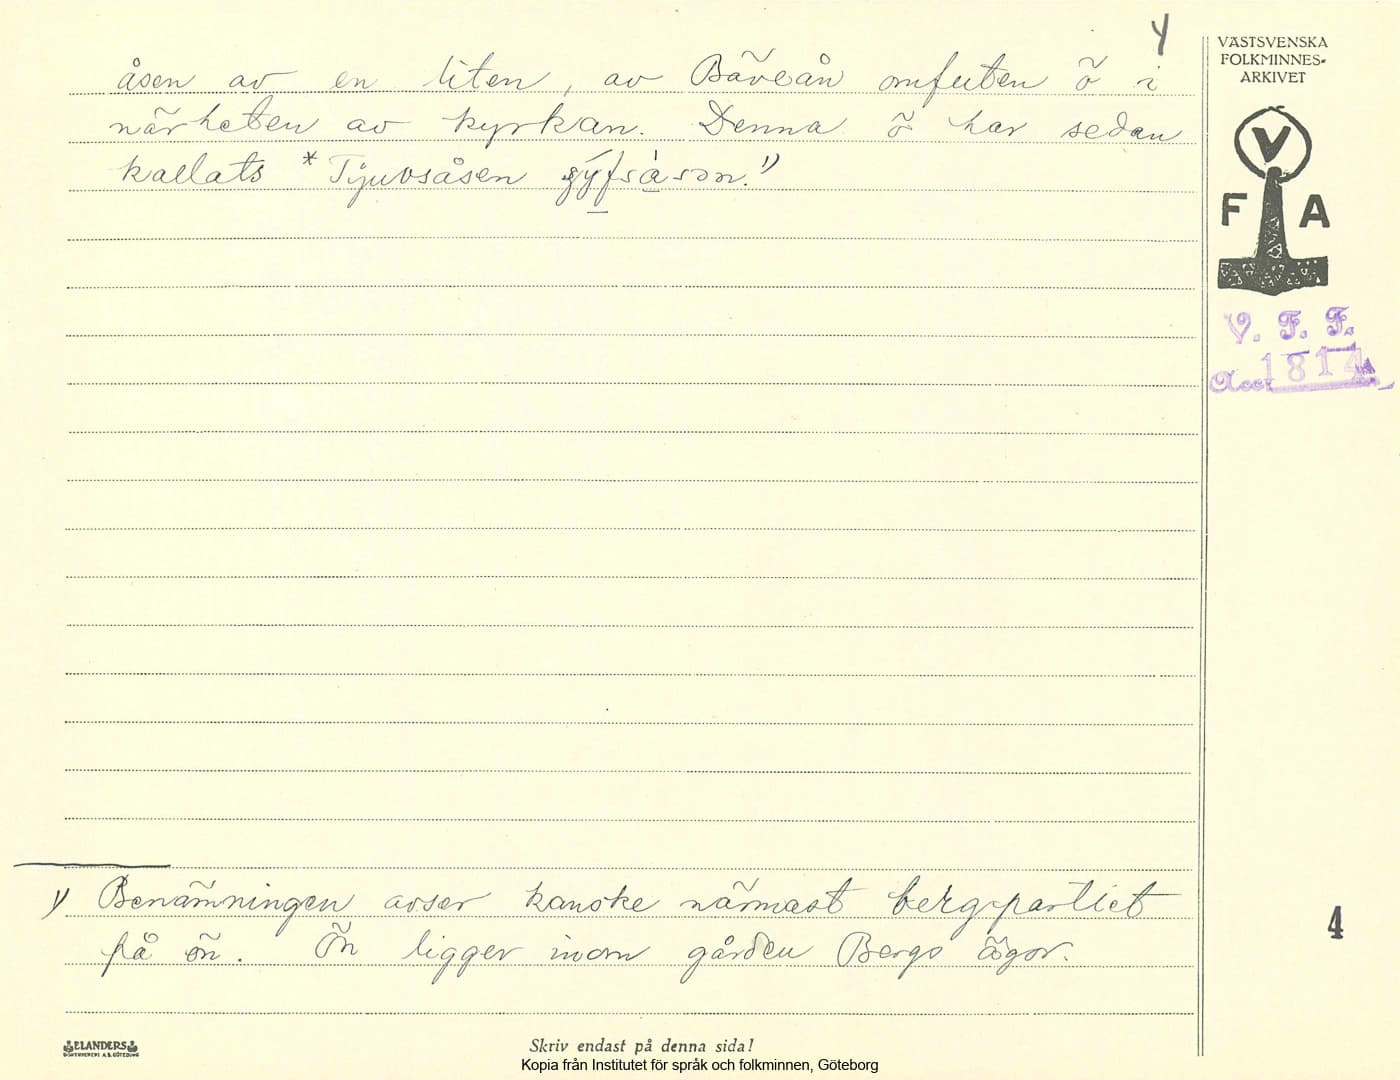 4
åsen av en liten, av Bäveån omfluten ö i
närheten av kyrkan. Denna ö har sedan
kallats *Tjuvsåsen
1)
VÄSTSVENSKA
FOLKMINNES-
ARKIVET
V
F A
V. F. F.
Acc. 1814
1) Benämningen avser kanske närmast bergpartiet
på ön. Ön ligger inom gården Bergs ägor.
4
ELANDERS
BOKTRYCKERI A.B. GÖTEBORG
Skriv endast på denna sida!
Kopia från Institutet för språk och folkminnen, Göteborg